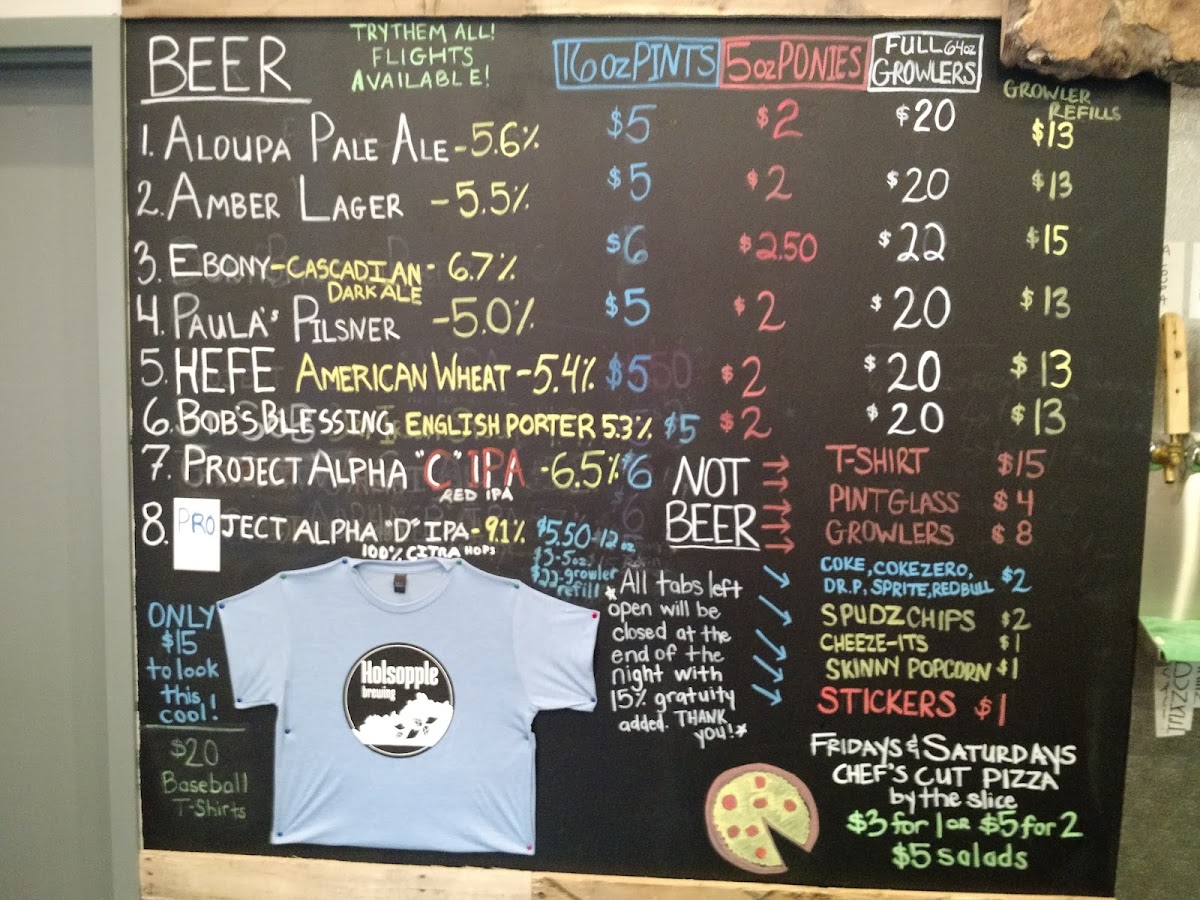 BEER
TRY THEM ALL!
FLIGHTS
AVAILABLE!
16oz PINTS
5oz PONIES
FULL 64oz
GROWLERS
GROWLER
REFILLS
1. ALOUPA PALE ALE - 5.6% $5 $2 $20 $13
2. AMBER LAGER - 5.5% $5 $2 $20 $13
3. EBONY - CASCADIAN - 6.7% $6 $2.50 $22 $15
DARK ALE
4. PAULA'S PILSNER - 5.0% $5 $2 $20 $13
5. HEFE AMERICAN WHEAT - 5.4% $5 $2 $20 $13
6. BOB'S BLESSING ENGLISH PORTER 5.3% $5 $2 $20 $13
7. PROJECT ALPHA "C" IPA - 6.5% $6
RED IPA
8. PROJECT ALPHA "D" IPA - 9.1% $5.50-12oz
100% CITRA HOPS
$3-5oz
$22-growler
refill
NOT
BEER
T-SHIRT $15
PINT GLASS $4
GROWLERS $8
COKE, COKE ZERO,
DR.P, SPRITE, REDBULL $2
SPUDZ CHIPS $2
CHEEZE-ITS $1
SKINNY POPCORN $1
STICKERS $1
*All tabs left
open will be
closed at the
end of the
night with
15% gratuity
added. THANK
YOU!*
ONLY
$15
to look
this
cool!
$20
Baseball
T-Shirts
Holsopple
brewing
FRIDAYS & SATURDAYS
CHEF'S CUT PIZZA
by the slice
$3 for 1 OR $5 for 2
$5 salads